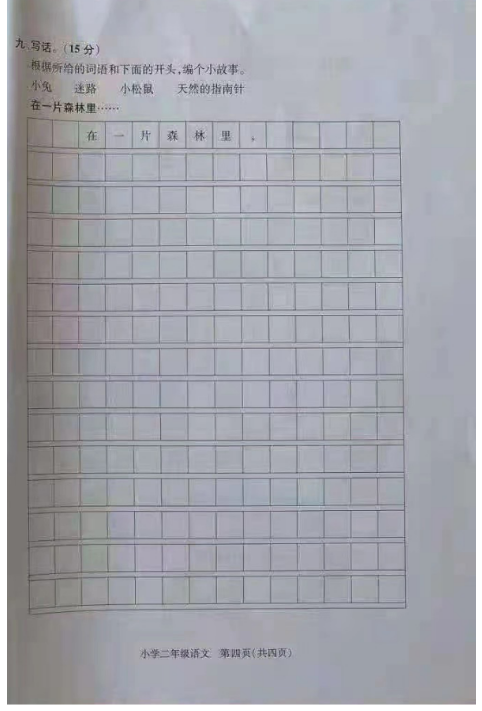 九、写话。(15分)
根据所给的词语和下面的开头,编个小故事。
小兔 迷路 小松鼠 天然的指南针
在一片森林里……
在一片森林里,
小学二年级语文 第四页(共四页)